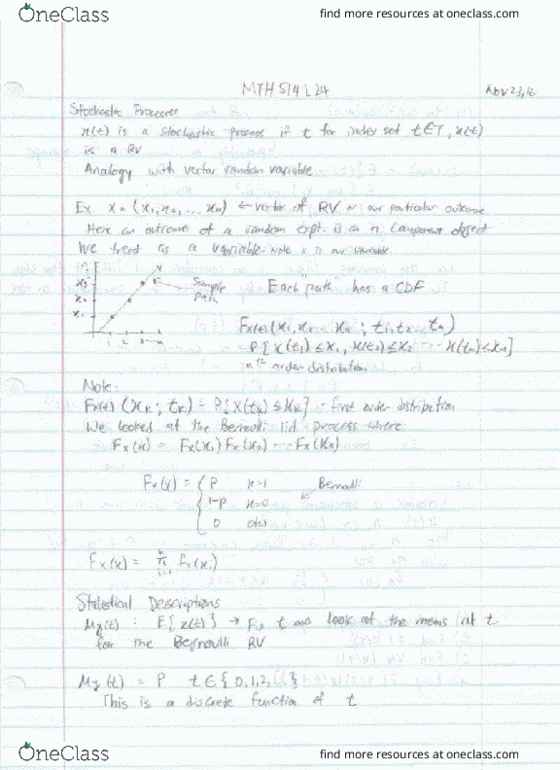 OneClass
find more resources at oneclass.com
MTH 514 L24
Nov 23, 16
Stochastic Processes
x(t) is a stochastic process if t for index set t∈T, x(t)
is a RV
Analogy with vector random variable
Ex. X = (x1, x2, ... xn) ← vector of RV our particular outcome
Here an outcome of a random expt. is an n component object
We treat as a variable. Note x is our variable
Sample path
Each path has a CDF
Fx(t)(x1, x2 ... xn; t1, t2 ... tn)
= P[X(t1) ≤ x1, X(t2) ≤ x2 ... X(tn) ≤ xn]
nth order distribution
Note:
Fx(t)(xk; tk) = P[X(tk) ≤ xk] - first order distribution
We looked at the Bernoulli iid process where
Fx(x) = Fx(x1) Fx(x2) ... Fx(xn)
Fx(x) = { P x=1
1-P x=0
0
Bernoulli
Fx(x) = π i=1 fx(xi)
Statistical Descriptions
Mx(t) : E{x(t)} → Fix t and look at the means at t.
for the Bernoulli RV
Mx(t) = P t∈{0,1,2,...}
This is a discrete function of t
OneClass
find more resources at oneclass.com